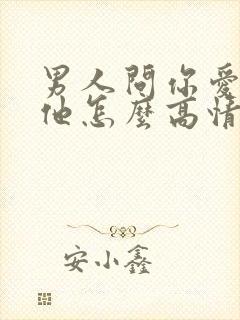 男人問你愛
他怎麼高情
安小鑫